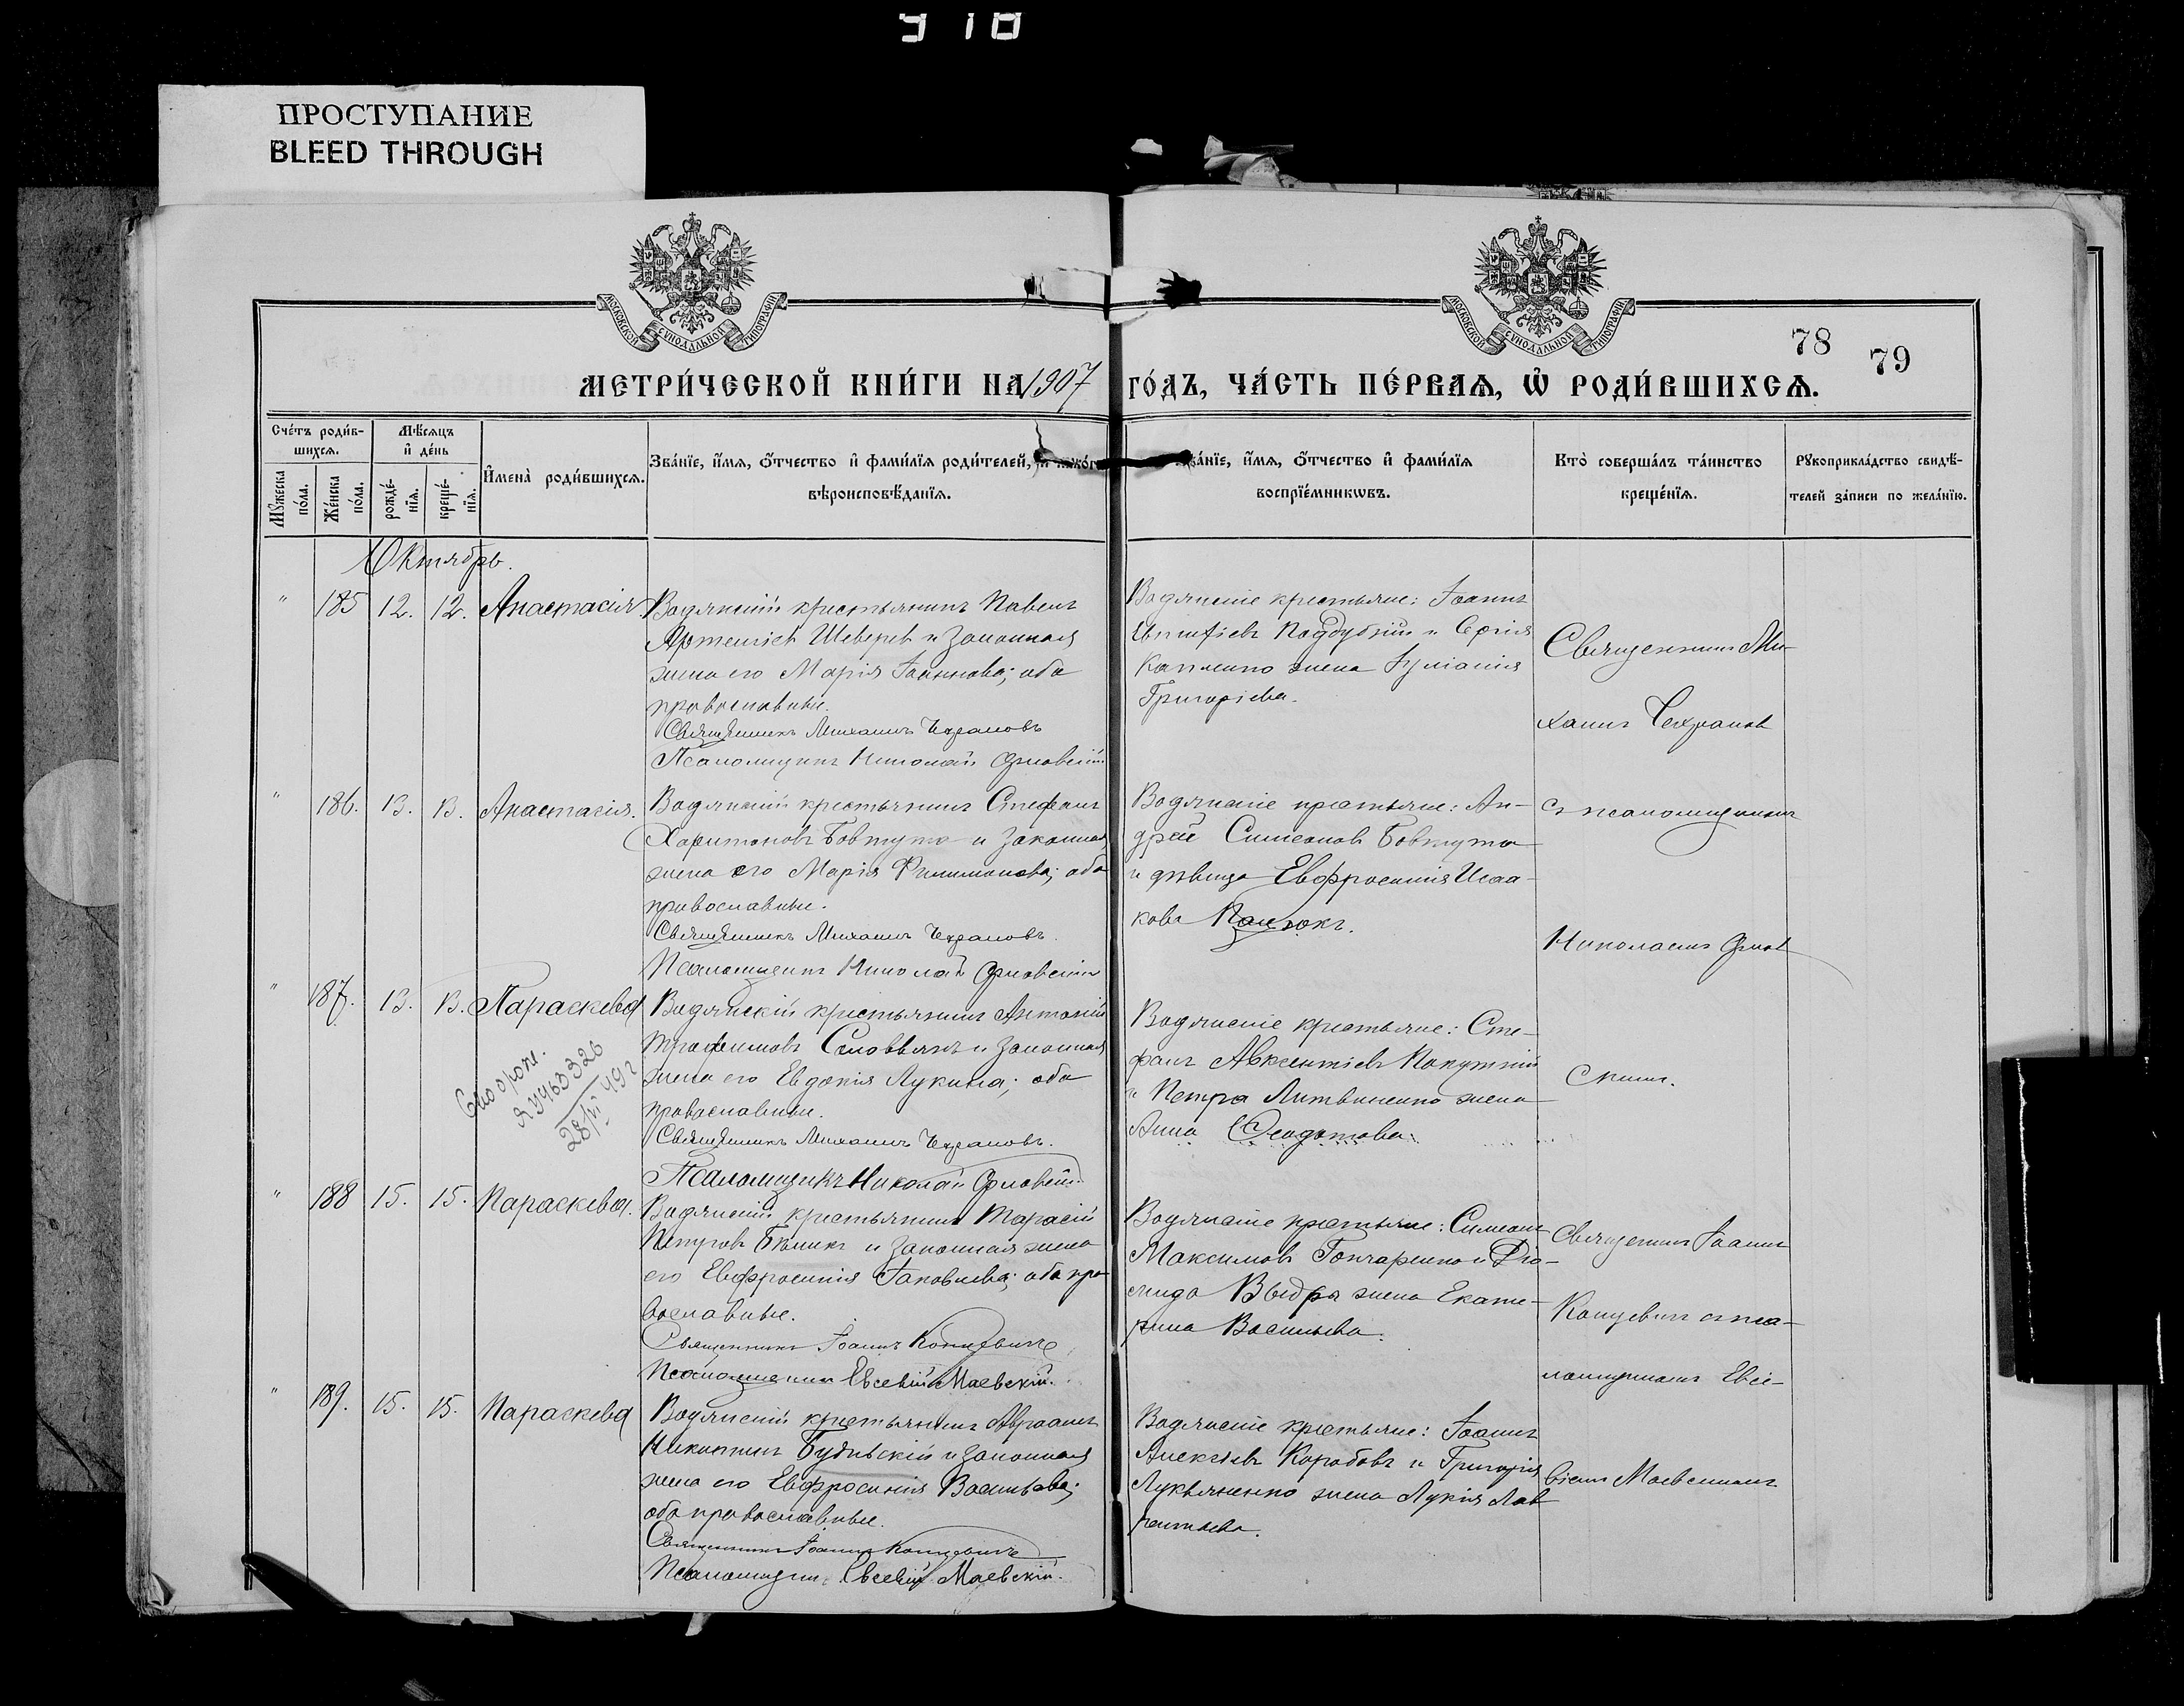 910
ПРОСТУПАНИЕ
BLEED THROUGH
МОСКОВСКОЙ СѴНОДАЛЬНОЙ ТИПОГРАФІИ
МОСКОВСКОЙ СѴНОДАЛЬНОЙ ТИПОГРАФІИ
78
79
МЕТРИ́ЧЕСКОЙ КНИ́ГИ НА 1907 ГО́ДЪ, ЧА́СТЬ ПЕ́РВАѦ, Ѡ҆ РОДИ́ВШИХСѦ.
Сче́тъ роди́в-
шихсѧ.
Мѣ́сѧцъ
и҆ де́нь
Мꙋ́жеска
по́ла.
Же́нска
по́ла.
рожде́-
нїѧ.
креще́-
нїѧ.
И҆мена̀ роди́вшихсѧ.
Зва́нїе, и҆́мѧ, ѻ҆́тчество и҆ фами́лїѧ роди́телей, и҆
вѣроисповѣ́данїѧ.
Зва́нїе, и҆́мѧ, ѻ҆́тчество и҆ фами́лїѧ
воспрїе́мникѡвъ.
Кто̀ соверша́лъ та́инство
креще́нїѧ.
Рꙋкоприкла́дство свидѣ́-
телей за́писи по жела́нїю.
Октябрь.
" 185 12. 12. Анастасія
Водянскій крестьянинъ Павелъ
Артеміевъ и законная
жена его Марія Іоаннова; оба
православные.
Священникъ Михаилъ Чехрановъ
Псаломщикъ Николай Орловскій
Водянскіе крестьяне: Іоаннъ
Поддубный и Сергія
жена Іуліанія
Григоріева.
Священникъ Ми-
хаилъ Чехрановъ
" 186. 13. 13. Анастасія.
Водянскій крестьянинъ Стефанъ
Харитоновъ Бовтута и законная
жена его Марія Филимонова; оба
православные.
Священникъ Михаилъ Чехрановъ.
Псаломщикъ Николай Орловскій
Водянскіе крестьяне: Ан-
дрей Симеоновъ Бовтута
и дѣвица Евфросинія Исаа-
кова
съ псаломщикомъ
Николаемъ
" 187. 13. 13. Параскева
Водянскій крестьянинъ Антоній
Трофимовъ и законная
жена его Евдокія Лукина; оба
православные.
Священникъ Михаилъ Чехрановъ.
Псаломщикъ Николай Орловскій
Водянскіе крестьяне: Сте-
фанъ Авксентіевъ
и Петра Литвиненко жена
Анна Феодотова.
28/VI 49 г
" 188 15. 15. Параскева.
Водянскій крестьянинъ Тарасій
Петровъ и законная жена
его Евфросинія Іаковлева; оба пра-
вославные.
Священникъ Іоаннъ Концевичъ
Псаломщикъ Евсевій Маевскій.
Водянскіе крестьяне: Симеонъ
Максимовъ Гончаренко и Діо-
мида Выдра жена Екате-
рина Васильева.
Священникъ Іоаннъ
Концевичъ съ пса-
ломщикомъ Евсе-
віемъ Маевскимъ
" 189. 15. 15. Параскева
Водянскій крестьянинъ Авраамъ
Никитинъ и законная
жена его Евфросинія Васильева;
оба православные.
Священникъ Іоаннъ Концевичъ
Псаломщикъ Евсевій Маевскій.
Водянскіе крестьяне: Іоаннъ
Алексѣевъ Коробовъ и Григорія
Лукьяненко жена Лукія Лав-
рентьева.